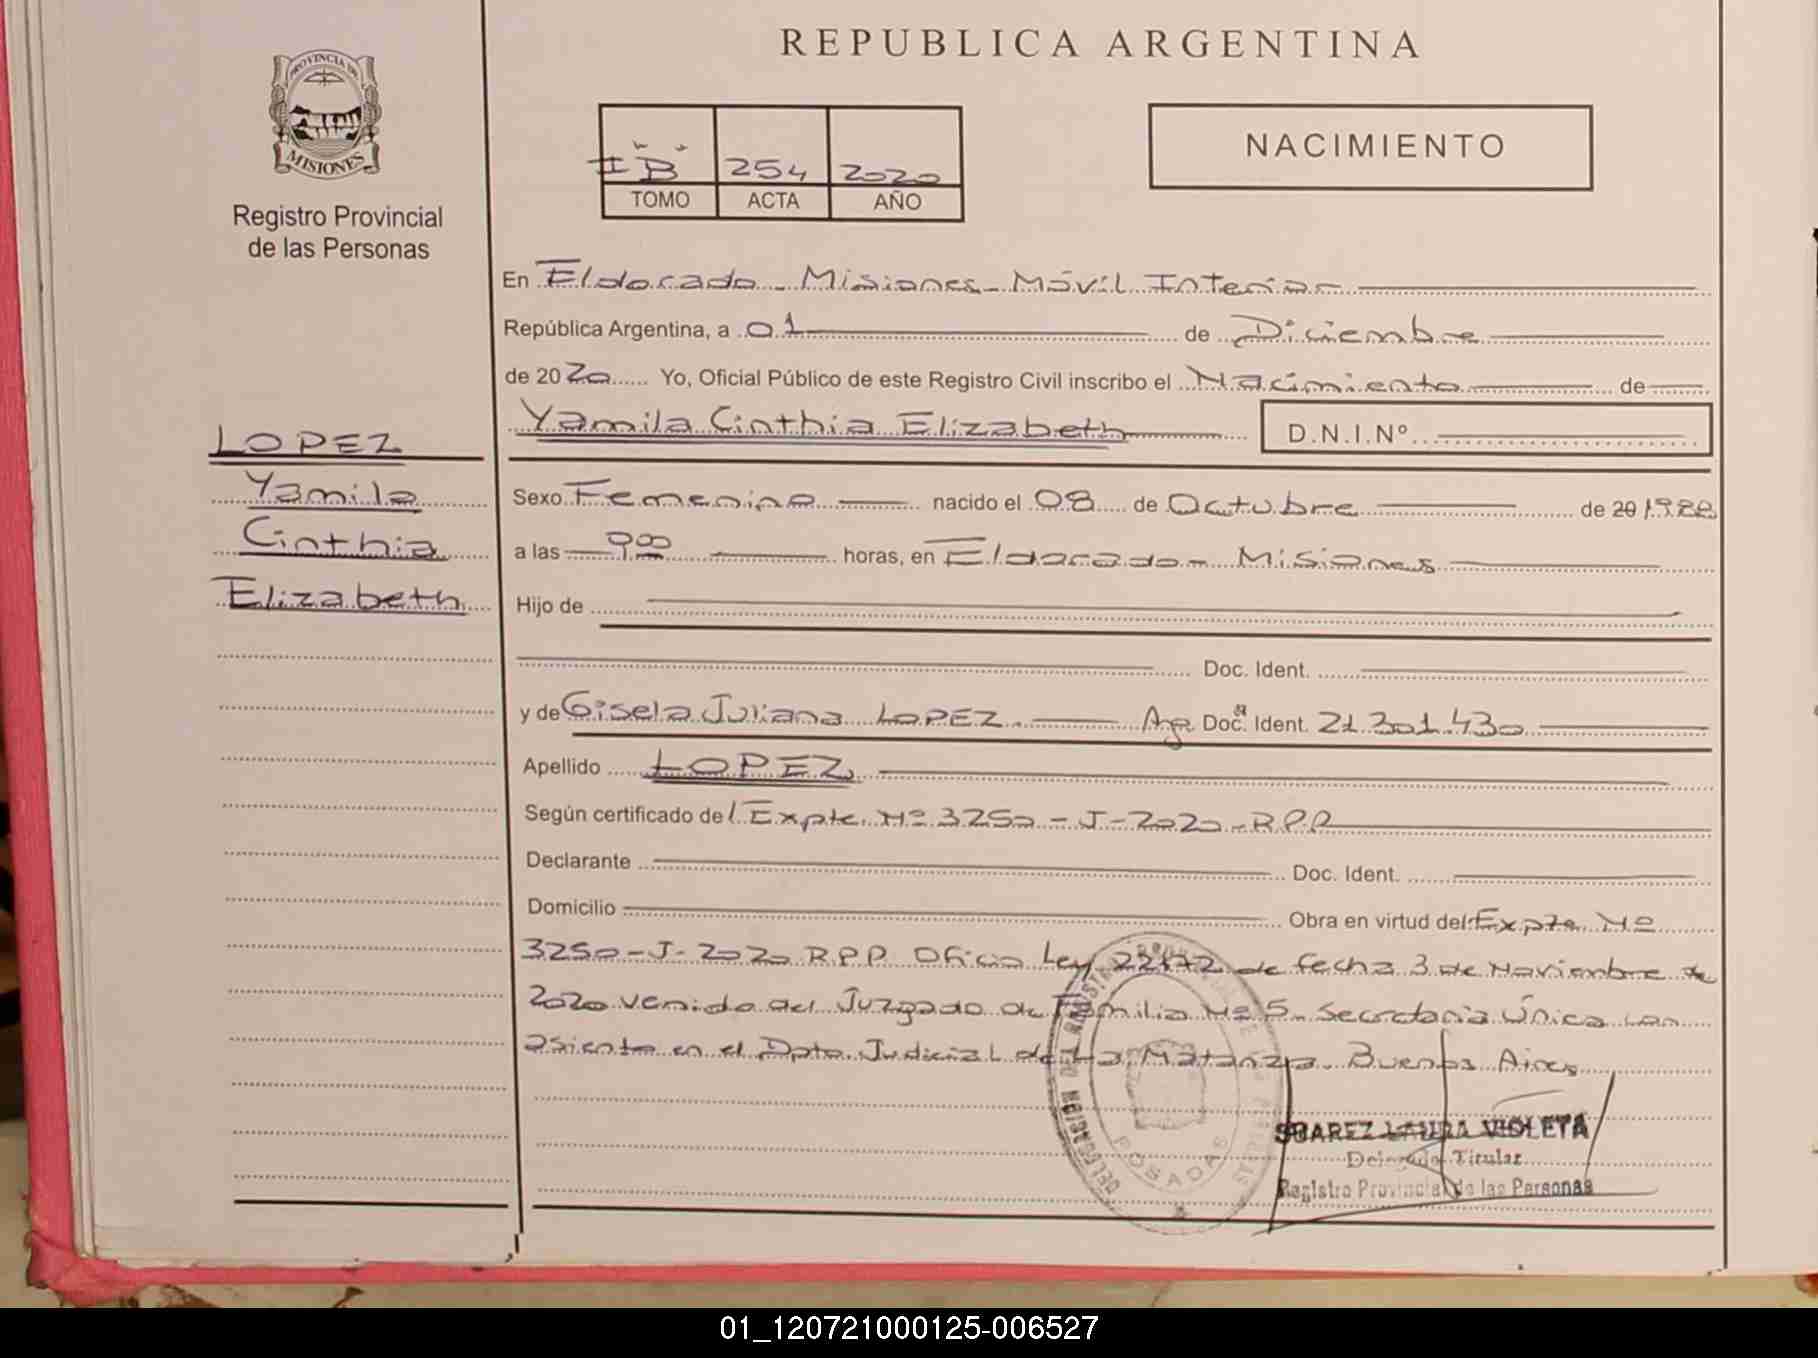 REPUBLICA ARGENTINA
PROVINCIA DE
MISIONES
Registro Provincial
de las Personas
I "B" 254 2020
TOMO ACTA AÑO
NACIMIENTO
En Eldorado - Misiones - Móvil Interior
República Argentina, a 01 de Diciembre
de 2020 Yo, Oficial Público de este Registro Civil inscribo el Nacimiento de
Yamila Cinthia Elizabeth D.N.I.Nº
LOPEZ
Yamila
Cinthia
Elizabeth
Sexo Femenino nacido el 08 de Octubre de 20 1988
a las 9:00 horas, en Eldorado - Misiones
Hijo de
Doc. Ident.
y de Gisela Juliana LOPEZ Arg. Doc. Ident. 21.301.430
Apellido LOPEZ
Según certificado del Expte. Nº 3250 - J - 2020 - R.P.P
Declarante Doc. Ident.
Domicilio Obra en virtud del Expte Nº
3250 - J - 2020 R.P.P Oficio Ley 22172 de fecha 3 de Noviembre de
2020 venido del Juzgado de Familia Nº 5 - Secretaria Única con
asiento en el Dpto. Judicial de La Matanza - Buenos Aires
POSADAS
SUAREZ LAURA VIOLETA
Delegada Titular
Registro Provincial de las Personas
01_120721000125-006527